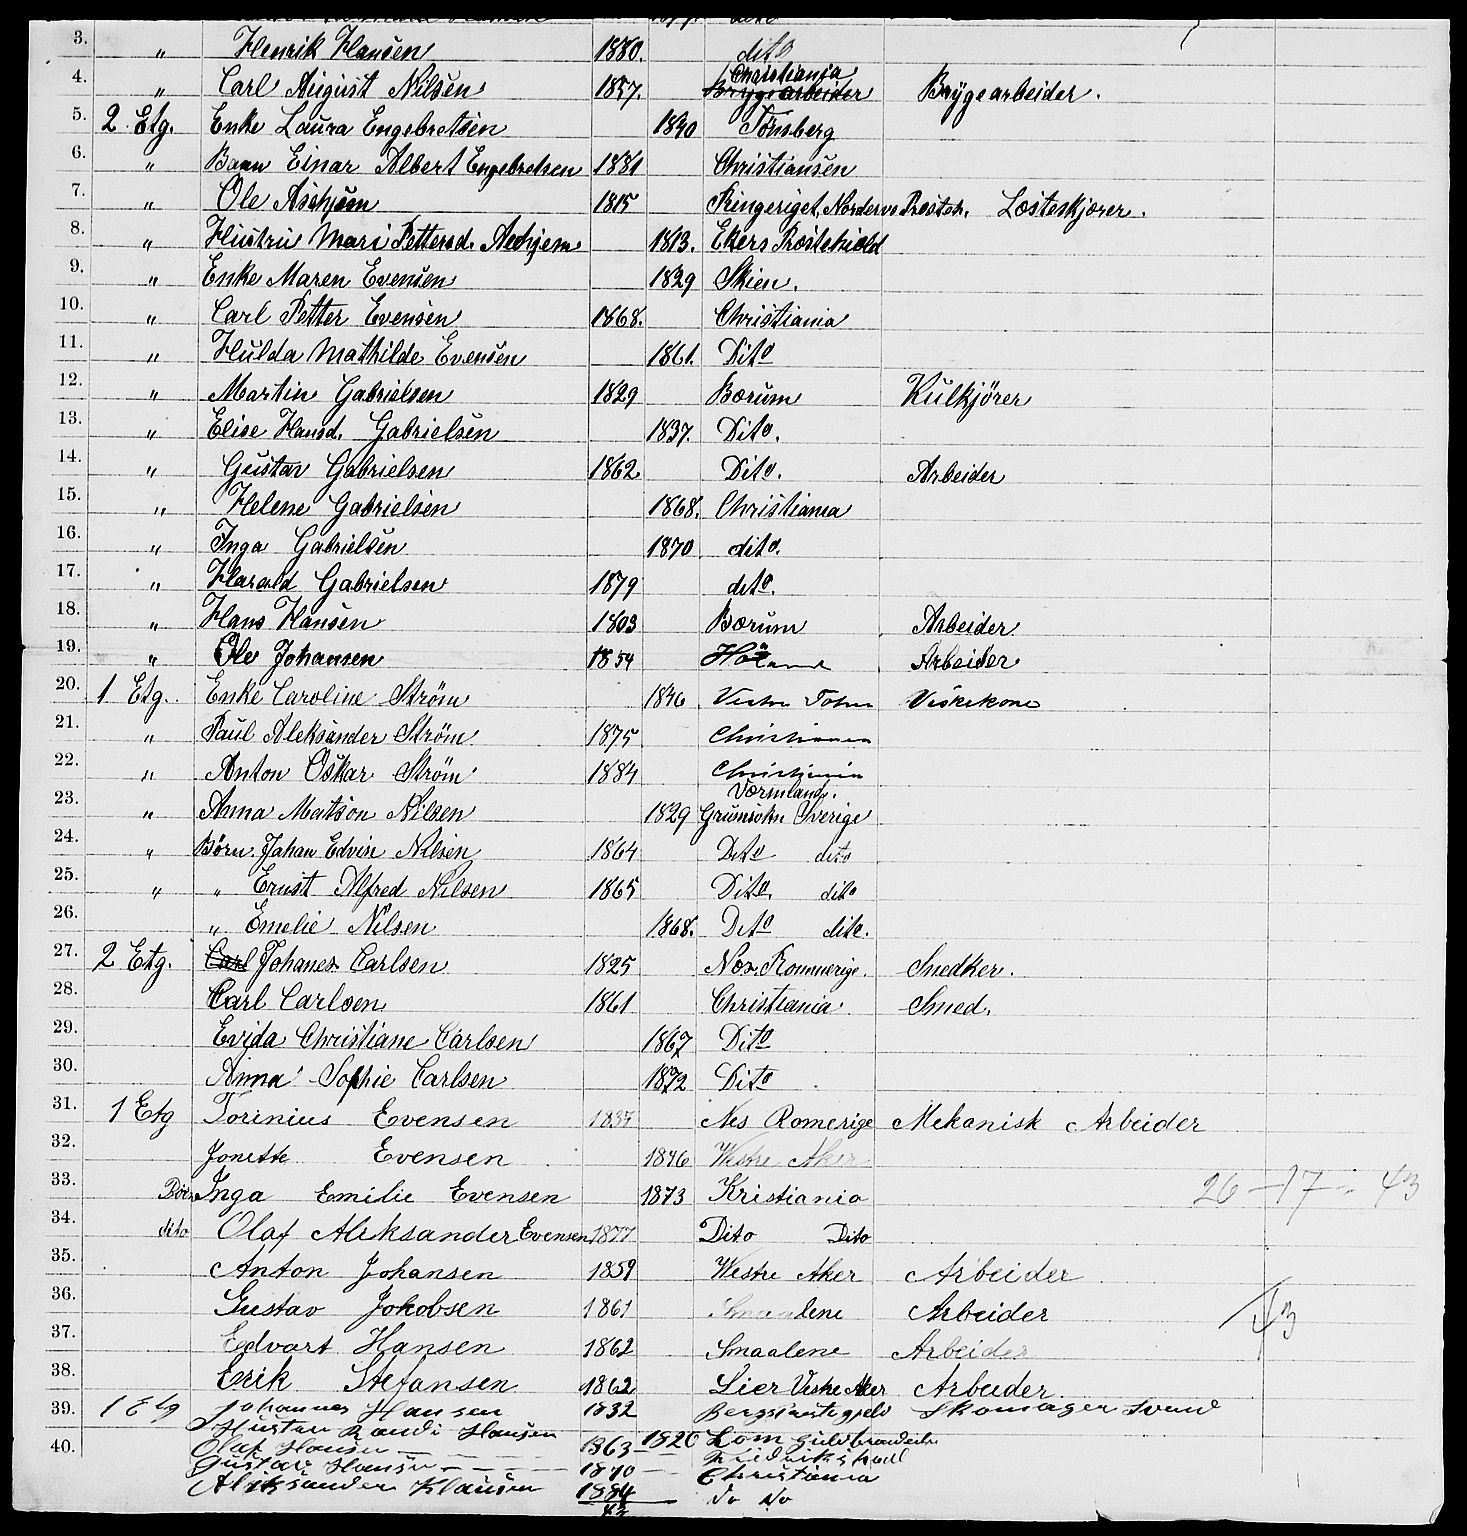 3. " Henrik Hansen 1880. dito
4. " Carl August Nilsen 1857. Christiania Bryggearbeider Brygearbeider.
5. 2 Etg. Enke Laura Engebretsen 1840 Tønsberg
6. " Barn Einar Albert Engebretsen 1881 Christiansen
7. " Ole 1815 Ringeriget, Norderov Præstek. Læsteskjører.
8. " Hustru Mari Pettersd. 1813. Ekers
9. " Enke Maren Evensen 1829 Skien.
10. " Carl Petter Evensen 1868. Christiania
11. " Hulda Mathilde Evensen 1861. Dito
12. " Martin Gabrielsen 1829 Bærum Kulkjörer
13. " Elise Hansd. Gabrielsen 1837. Dito.
14. " Gustav Gabrielsen 1862 Dito. Arbeider
15. " Helene Gabrielsen 1868. Christiania
16. " Inga Gabrielsen 1870 dito.
17. " Harald Gabrielsen 1879 dito.
18. " Hans Hansen 1803 Bærum Arbeider
19. " Ole Johansen 1854 Höland Arbeider
20. 1 Etg. Enke Caroline Strøm 1846 Vestre Toten Vaskekone
21. " Paul Aleksander Strøm 1875 Christiania
22. " Anton Oskar Strøm 1884 Christiania
Vormland.
23. " Anna Matson Nilsen 1829 Sverige
24. " Børn Johan Edvin Nilsen 1864 Dito dito
25. " " Ernst Alfred Nilsen 1865 Dito. dito
26. " Emelie Nilsen 1868. Dito dito.
27. 2 Etg. Carl Johanes Carlsen 1825 Nœs. Rommerige. Snedker.
28. Carl Carlsen 1861 Christiania Smed.
29. Evida Christiane Carlsen 1867 Dito
30. Anna Sophie Carlsen 1872 Dito
31. 1 Etg Torinius Evensen 1837 Nes Romerige Mekanisk Arbeider
32. Jonette Evensen 1846 Westre Aker
33. Børn Inga Emilie Evensen 1873 Kristiania 26 - 17 = 43
34. dito Olaf Aleksander Evensen 1877 Dito Dito
35. Anton Johansen 1859 Westre Aker Arbeider
36. Gustav Jokobsen 1861 Smaalene Arbeider 43
37. Edvart Hansen 1862 Smaalene Arbeider
38. Erik Stefansen 1862 Lier Vestre Aker Arbeider
39. 1 Etg Johannes Hansen 1832 Skomager Svend
Hustru Randi Hansen 1820 Lom
40. Olaf Hansen 1863 Fredrikshall
Gustav Hansen 1870 Christiania
Aleksander Klausen 1884 do No
43